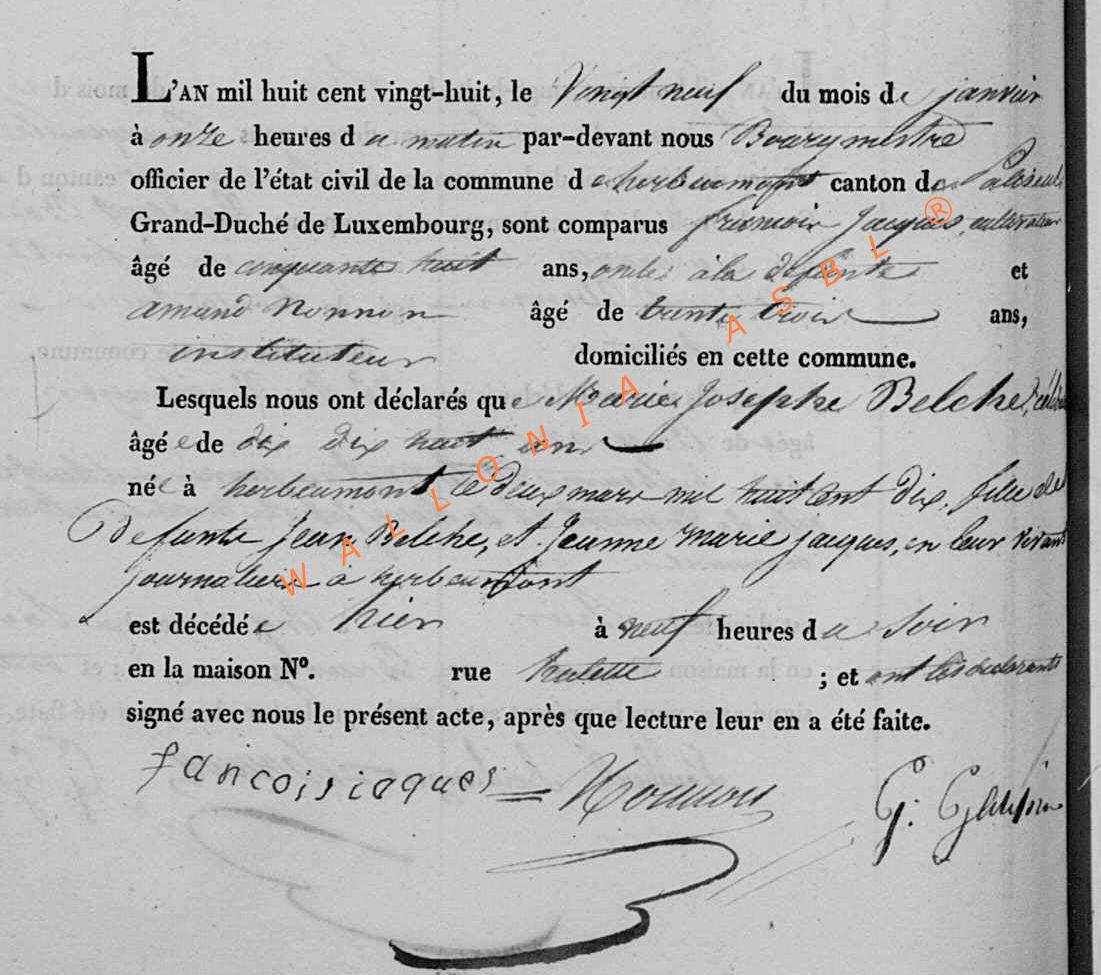 L'AN mil huit cent vingt-huit, le Vingt neuf du mois de janvier
à onze heures du matin par-devant nous Bourgmestre
officier de l'état civil de la commune d'herbeumont canton de Paliseul
Grand-Duché de Luxembourg, sont comparus Jacques, cultivateur
âgé de cinquante huit ans, oncle à la défunte et
amand Nonnon âgé de trente trois ans,
instituteur domiciliés en cette commune.
Lesquels nous ont déclarés que Marie Josephe Belche,
âgée de dix dix huit ans
née à herbeumont le deux mars mil huit cent dix, fille de
Defunte Jean Belche, et Jeanne marie jacques, en leur vivant
journaliers à herbeumont
est décédée hier à neuf heures du soir
en la maison N°. rue ; et ont les déclarants
signé avec nous le présent acte, après que lecture leur en a été faite.
francois iaques Nonnon G:
WALLONIA ASBL®